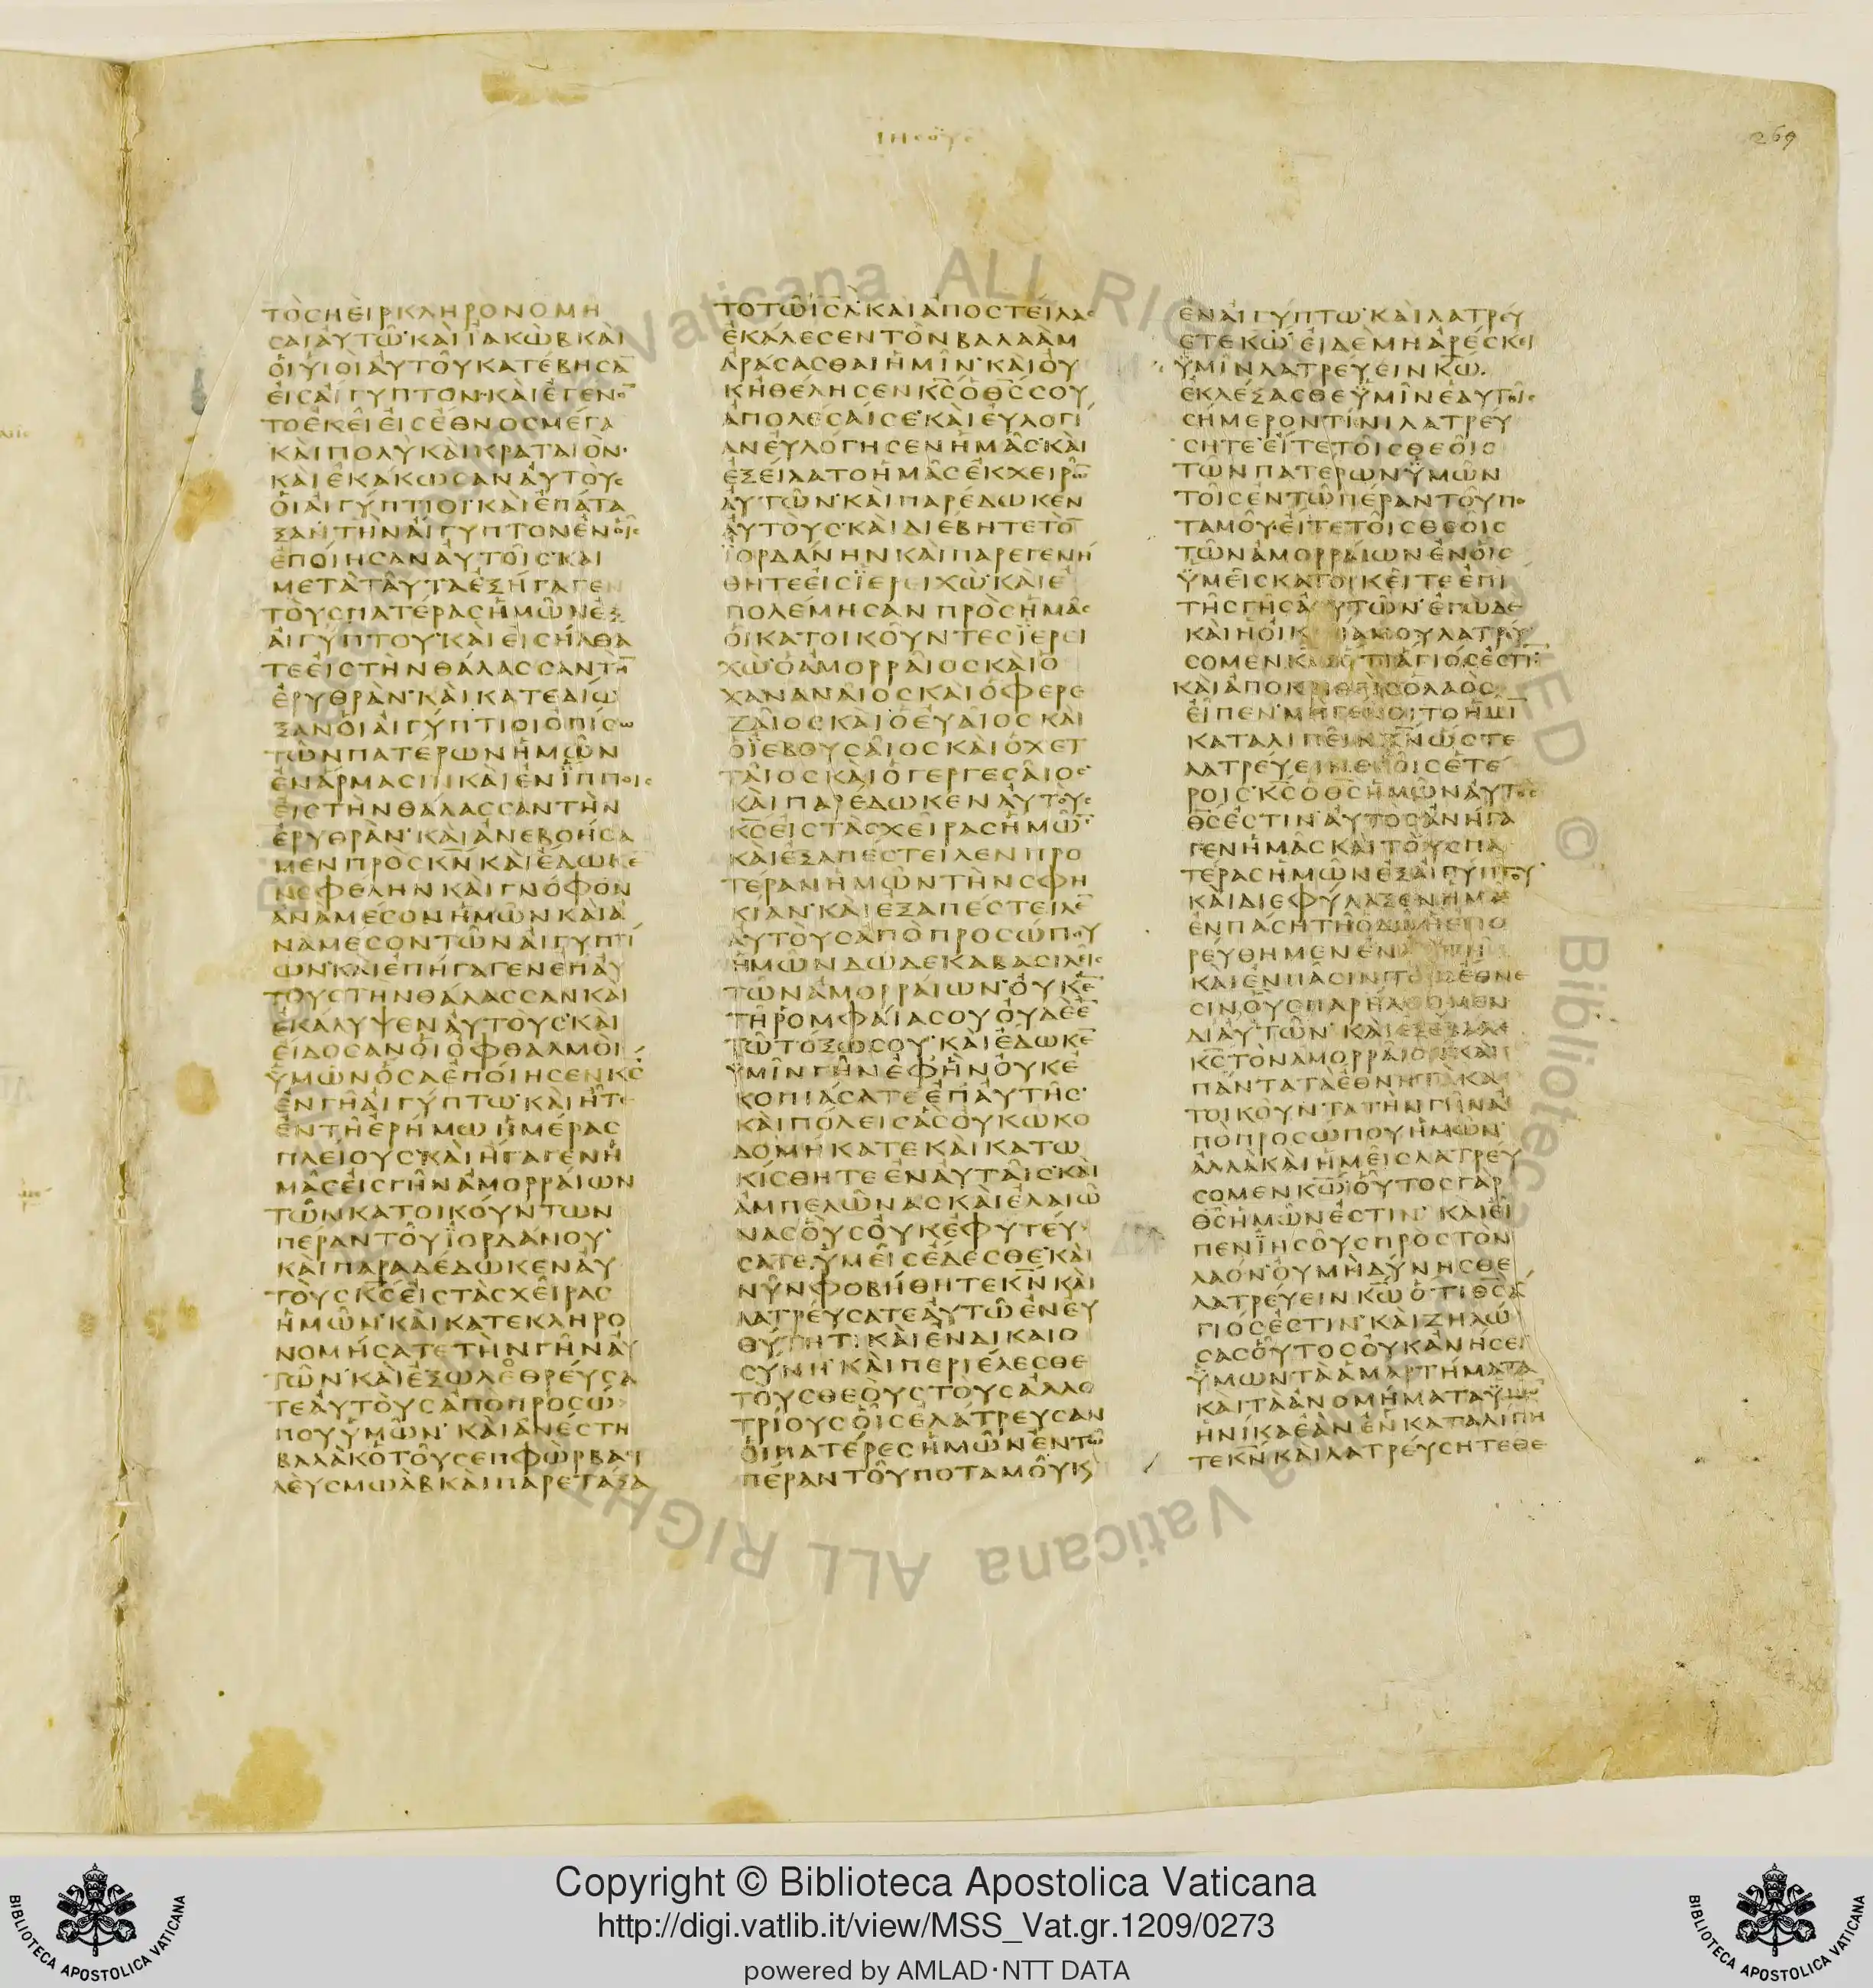 ΙΗϹΟΥϹ
269
ΤΟϹΗΕΙΡΚΛΗΡΟΝΟΜΗ
ϹΑΙΑΥΤΩ·ΚΑΙΪΑΚΩΒΚΑΙ
ΟΙΥΙΟΙΑΥΤΟΥΚΑΤΕΒΗϹΑ̅
ΕΙϹΑΙΓΥΠΤΟΝ·ΚΑΙΕΓΕΝΟ̅
ΤΟΕΚΕΙΕΙϹΕΘΝΟϹΜΕΓΑ
ΚΑΙΠΟΛΥΚΑΙΚΡΑΤΑΙΟΝ·
ΚΑΙΕΚΑΚΩϹΑΝΑΥΤΟΥϹ
ΟΙΑΙΓΥΠΤΙΟΙ·ΚΑΙΕΠΑΤΑ
ΞΑΝΤΗΝΑΙΓΥΠΤΟΝΕΝΟΙϹ
ΕΠΟΙΗϹΑΝΑΥΤΟΙϹ·ΚΑΙ
ΜΕΤΑΤΑΥΤΑΕΞΗΓΑΓΕΝ
ΤΟΥϹΠΑΤΕΡΑϹΗΜΩΝΕΞ
ΑΙΓΥΠΤΟΥ·ΚΑΙΕΙϹΗΛΘΑ
ΤΕΕΙϹΤΗΝΘΑΛΑϹϹΑΝΤΗ̅
ΕΡΥΘΡΑΝ·ΚΑΙΚΑΤΕΔΙΩ
ΞΑΝΟΙΑΙΓΥΠΤΙΟΙΟΠΙϹΩ
ΤΩΝΠΑΤΕΡΩΝΗΜΩΝ
ΕΝΑΡΜΑϹΙΝΚΑΙΕΝΪΠΠΟΙϹ
ΕΙϹΤΗΝΘΑΛΑϹϹΑΝΤΗΝ
ΕΡΥΘΡΑΝ·ΚΑΙΑΝΕΒΟΗϹΑ
ΜΕΝΠΡΟϹΚ̅Ν̅ΚΑΙΕΔΩΚΕ̅
ΝΕΦΕΛΗΝΚΑΙΓΝΟΦΟΝ
ΑΝΑΜΕϹΟΝΗΜΩΝΚΑΙΑ
ΝΑΜΕϹΟΝΤΩΝΑΙΓΥΠΤΙ
ΩΝ·ΚΑΙΕΠΗΓΑΓΕΝΕΠΑΥ
ΤΟΥϹΤΗΝΘΑΛΑϹϹΑΝΚΑΙ
ΕΚΑΛΥΨΕΝΑΥΤΟΥϹ·ΚΑΙ
ΕΙΔΟϹΑΝΟΙΟΦΘΑΛΜΟΙ
ΫΜΩΝΟϹΑΕΠΟΙΗϹΕΝΚ̅Ϲ̅
ΕΝΓΗΑΙΓΥΠΤΩ·ΚΑΙΗΤΕ
ΕΝΤΗΕΡΗΜΩΗΜΕΡΑϹ
ΠΛΕΙΟΥϹ·ΚΑΙΗΓΑΓΕΝΗ
ΜΑϹΕΙϹΓΗΝΑΜΟΡΡΑΙΩΝ
ΤΩΝΚΑΤΟΙΚΟΥΝΤΩΝ
ΠΕΡΑΝΤΟΥΪΟΡΔΑΝΟΥ·
ΚΑΙΠΑΡΑΔΕΔΩΚΕΝΑΥ
ΤΟΥϹΚ̅Ϲ̅ΕΙϹΤΑϹΧΕΙΡΑϹ
ΗΜΩΝ·ΚΑΙΚΑΤΕΚΛΗΡΟ
ΝΟΜΗϹΑΤΕΤΗΝΓΗΝΑΥ
ΤΩΝ·ΚΑΙΕΞΩΛΕΘΡΕΥϹΑ
ΤΕΑΥΤΟΥϹΑΠΟΠΡΟϹΩ
ΠΟΥΫΜΩΝ·ΚΑΙΑΝΕϹΤΗ
ΒΑΛΑΚΟΤΟΥϹΕΠΦΩΡΒΑϹΙ
ΛΕΥϹΜΩΑΒΚΑΙΠΑΡΕΤΑΞΑ
ΤΟΤΩΙ̅Ϲ̅Λ̅·ΚΑΙΑΠΟϹΤΕΙΛΑϹ
ΕΚΑΛΕϹΕΝΤΟΝΒΑΛΑΑΜ
ΑΡΑϹΑϹΘΑΙΗΜΙΝ·ΚΑΙΟΥ
ΚΗΘΕΛΗϹΕΝΚ̅Ϲ̅ΟΘ̅Ϲ̅ϹΟΥ
ΑΠΟΛΕϹΑΙϹΕ·ΚΑΙΕΥΛΟΓΙ
ΑΝΕΥΛΟΓΗϹΕΝΗΜΑϹ·ΚΑΙ
ΕΞΕΙΛΑΤΟΗΜΑϹΕΚΧΕΙΡΩ̅
ΑΥΤΩΝ·ΚΑΙΠΑΡΕΔΩΚΕΝ
ΑΥΤΟΥϹ·ΚΑΙΔΙΕΒΗΤΕΤΟ̅
ΪΟΡΔΑΝΗΝΚΑΙΠΑΡΕΓΕΝΗ
ΘΗΤΕΕΙϹΪΕΡΕΙΧΩ·ΚΑΙΕ
ΠΟΛΕΜΗϹΑΝΠΡΟϹΗΜΑϹ
ΟΙΚΑΤΟΙΚΟΥΝΤΕϹΪΕΡΕΙ
ΧΩ·ΟΑΜΟΡΡΑΙΟϹΚΑΙΟ
ΧΑΝΑΝΑΙΟϹΚΑΙΟΦΕΡΕ
ΖΑΙΟϹΚΑΙΟΕΥΑΙΟϹΚΑΙ
ΟΪΕΒΟΥϹΑΙΟϹΚΑΙΟΧΕΤ
ΤΑΙΟϹΚΑΙΟΓΕΡΓΕϹΑΙΟϹ·
ΚΑΙΠΑΡΕΔΩΚΕΝΑΥΤΟΥϹ
Κ̅Ϲ̅ΕΙϹΤΑϹΧΕΙΡΑϹΗΜΩ̅·
ΚΑΙΕΞΑΠΕϹΤΕΙΛΕΝΠΡΟ
ΤΕΡΑΝΗΜΩΝΤΗΝϹΦΗ
ΚΙΑΝ·ΚΑΙΕΞΑΠΕϹΤΕΙΛΕ̅
ΑΥΤΟΥϹΑΠΟΠΡΟϹΩΠΟΥ
ΗΜΩΝΔΩΔΕΚΑΒΑϹΙΛΕΙϹ
ΤΩΝΑΜΟΡΡΑΙΩΝ·ΟΥΚΕ̅
ΤΗΡΟΜΦΑΙΑϹΟΥΟΥΔΕΕ̅
ΤΩΤΟΞΩϹΟΥ·ΚΑΙΕΔΩΚΕ̅
ΫΜΙΝΓΗΝΕΦΗΝΟΥΚΕ
ΚΟΠΙΑϹΑΤΕΕΠΑΥΤΗϹ·
ΚΑΙΠΟΛΕΙϹΑϹΟΥΚΩΚΟ
ΔΟΜΗΚΑΤΕΚΑΙΚΑΤΩ
ΚΙϹΘΗΤΕΕΝΑΥΤΑΙϹ·ΚΑΙ
ΑΜΠΕΛΩΝΑϹΚΑΙΕΛΑΙΩ̅
ΝΑϹΟΥϹΟΥΚΕΦΥΤΕΥ
ϹΑΤΕΫΜΕΙϹΕΔΕϹΘΕ·ΚΑΙ
ΝΥΝΦΟΒΗΘΗΤΕΚ̅Ν̅ΚΑΙ
ΛΑΤΡΕΥϹΑΤΕΑΥΤΩΕΝΕΥ
ΘΥΤΗΤΙΚΑΙΕΝΔΙΚΑΙΟ
ϹΥΝΗ·ΚΑΙΠΕΡΙΕΛΕϹΘΕ
ΤΟΥϹΘΕΟΥϹΤΟΥϹΑΛΛΟ
ΤΡΙΟΥϹΟΙϹΕΛΑΤΡΕΥϹΑΝ
ΟΙΠΑΤΕΡΕϹΗΜΩΝΕΝΤΩ
ΠΕΡΑΝΤΟΥΠΟΤΑΜΟΥΚϚ
ΕΝΑΙΓΥΠΤΩ·ΚΑΙΛΑΤΡΕΥ
ΕΤΕΚ̅Ω̅·ΕΙΔΕΜΗΑΡΕϹΚΕΙ
ΫΜΙΝΛΑΤΡΕΥΕΙΝΚ̅Ω̅·
ΕΚΛΕΞΑϹΘΕΫΜΙΝΕΑΥΤΟΙϹ
ϹΗΜΕΡΟΝΤΙΝΙΛΑΤΡΕΥ
ϹΗΤΕ·ΕΙΤΕΤΟΙϹΘΕΟΙϹ
ΤΩΝΠΑΤΕΡΩΝΫΜΩΝ
ΤΟΙϹΕΝΤΩΠΕΡΑΝΤΟΥΠΟ
ΤΑΜΟΥ·ΕΙΤΕΤΟΙϹΘΕΟΙϹ
ΤΩΝΑΜΟΡΡΑΙΩΝΕΝΟΙϹ
ΫΜΕΙϹΚΑΤΟΙΚΕΙΤΕΕΠΙ
ΤΗϹΓΗϹΑΥΤΩΝ·ΕΓΩΔΕ
ΚΑΙΗΟΙΚΙΑΜΟΥΛΑΤΡΕΥ
ϹΟΜΕΝΚ̅Ω̅ΟΤΙΑΓΙΟϹΕϹΤΙ̅·
ΚΑΙΑΠΟΚΡΙΘΕΙϹΟΛΑΟϹ
ΕΙΠΕΝ·ΜΗΓΕΝΟΙΤΟΗΜΙ̅
ΚΑΤΑΛΙΠΕΙΝΚ̅Ν̅ΩϹΤΕ
ΛΑΤΡΕΥΕΙΝΘΕΟΙϹΕΤΕ
ΡΟΙϹ·Κ̅Ϲ̅ΟΘ̅Ϲ̅ΗΜΩΝΑΥΤΟϹ
Θ̅Ϲ̅ΕϹΤΙΝ·ΑΥΤΟϹΑΝΗΓΑ
ΓΕΝΗΜΑϹΚΑΙΤΟΥϹΠΑ
ΤΕΡΑϹΗΜΩΝΕΞΑΙΓΥΠΤΟΥ·
ΚΑΙΔΙΕΦΥΛΑΞΕΝΗΜΑϹ
ΕΝΠΑϹΗΤΗΟΔΩΗΕΠΟ
ΡΕΥΘΗΜΕΝΕΝΑΥΤΗ
ΚΑΙΕΝΠΑϹΙΝΤΟΙϹΕΘΝΕ
ϹΙΝΟΥϹΠΑΡΗΛΘΟΜΕΝ
ΔΙΑΥΤΩΝ·ΚΑΙΕΞΕΒΑΛΕ
Κ̅Ϲ̅ΤΟΝΑΜΟΡΡΑΙΟΝΚΑΙ
ΠΑΝΤΑΤΑΕΘΝΗΤΑΚΑ
ΤΟΙΚΟΥΝΤΑΤΗΝΓΗΝΑ
ΠΟΠΡΟϹΩΠΟΥΗΜΩΝ·
ΑΛΛΑΚΑΙΗΜΕΙϹΛΑΤΡΕΥ
ϹΟΜΕΝΚ̅Ω̅·ΟΥΤΟϹΓΑΡ
Θ̅Ϲ̅ΗΜΩΝΕϹΤΙΝ·ΚΑΙΕΙ
ΠΕΝΪΗϹΟΥϹΠΡΟϹΤΟΝ
ΛΑΟΝ·ΟΥΜΗΔΥΝΗϹΘΕ
ΛΑΤΡΕΥΕΙΝΚ̅Ω̅ΟΤΙΘ̅Ϲ̅Α
ΓΙΟϹΕϹΤΙΝ·ΚΑΙΖΗΛΩ
ϹΑϹΟΥΤΟϹΟΥΚΑΝΗϹΕΙ
ΫΜΩΝΤΑΑΜΑΡΤΗΜΑΤΑ
ΚΑΙΤΑΑΝΟΜΗΜΑΤΑΫΜΩ̅
ΗΝΙΚΑΕΑΝΕΝΚΑΤΑΛΙΠΗ
ΤΕΚ̅Ν̅ΚΑΙΛΑΤΡΕΥϹΗΤΕΘΕ
Copyright © Biblioteca Apostolica Vaticana
http://digi.vatlib.it/view/MSS_Vat.gr.1209/0273
powered by AMLAD·NTT DATA
BIBLIOTECA APOSTOLICA VATICANA
BIBLIOTECA APOSTOLICA VATICANA